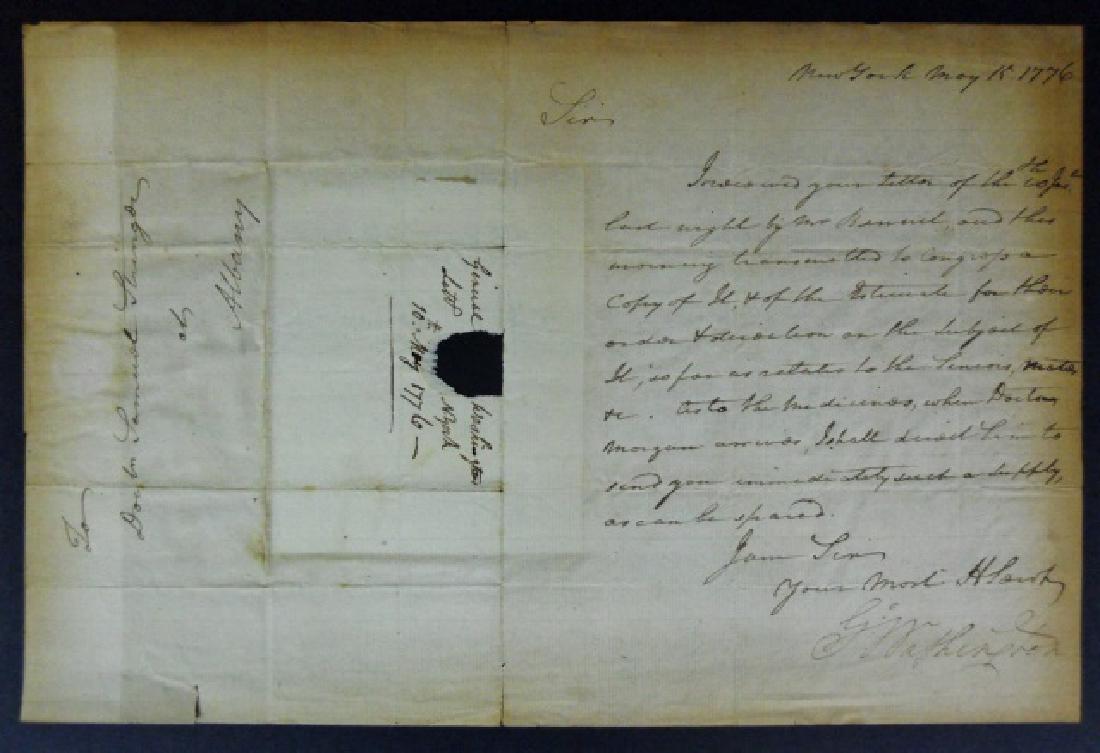 New York May 15 1776
Sir
I received your letter of the 10th Inst
last night by Mr Bennet, and this
morning transmitted to Congress a
Copy of It, & of the Estimate for their
order & direction on the Subject of
It, so far as relates to the Seniors, mates
&c. As to the Medicines, when Doctor
Morgan arrives, I shall direct him to
send you immediately such a supply,
as can be spared.
I am Sir
Your Most H Servt
Go Washington
To
Doctor Samuel Stringer
at
Albany
Washington
Lettr
N York
10th May 1776